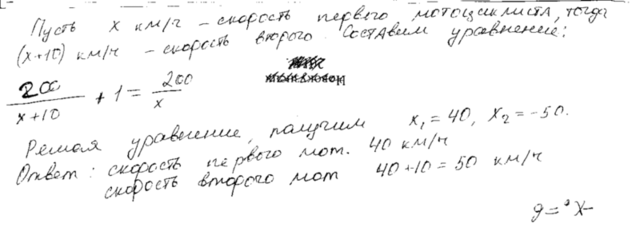 Пусть x км/г – скорость первого мотоциклиста, тогда
(x+10) км/ч – скорость второго. Составим уравнение:
200/(x+10) + 1 = 200/x
Решая уравнение, получим x₁ = 40, x₂ = -50.
Ответ: скорость первого мот. 40 км/ч
скорость второго мот 40+10 = 50 км/ч